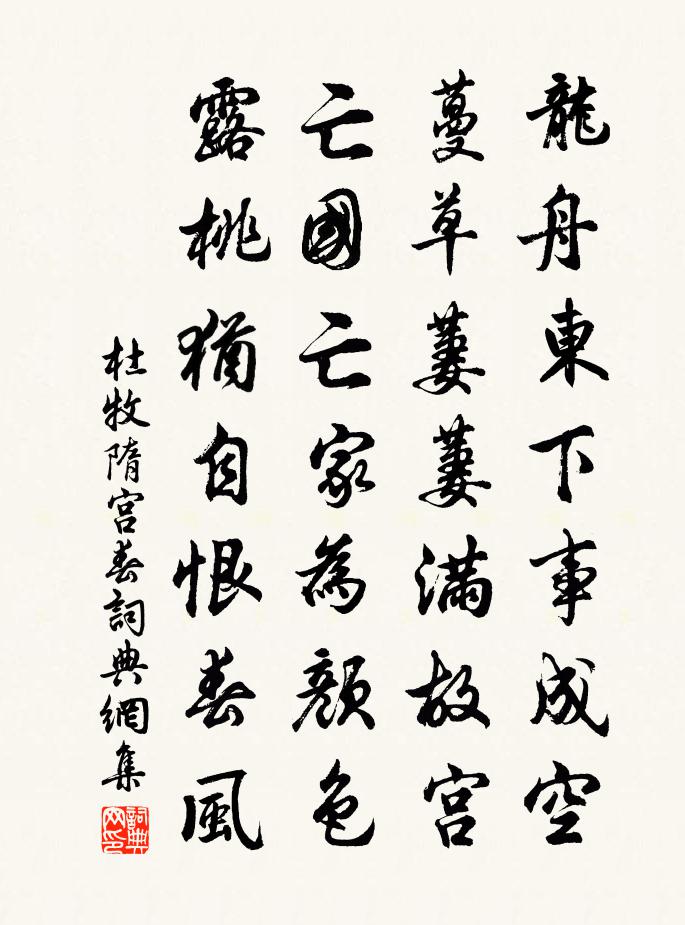 龍舟東下事成空
蔓草萋萋滿故宮
亡國亡家為顏色
露桃猶自恨春風
杜牧隋宮春詞典網集
詞典网印